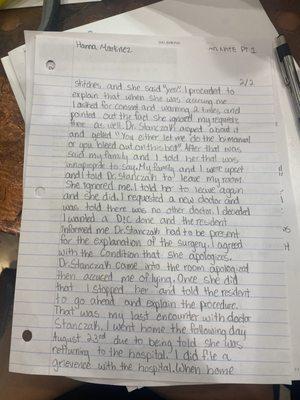 Hanna Martinez
Pt. 1
2/2
stitches and she said "yes". I proceeded to
explain that when she was accusing me
I asked for consent and warning 2 times and
pointed out the fact she ignored my requests
there as well. Dr. Stanczak about it
and yelled "You either let me do the bimanual
or you bleed out on this bed" After that was
said my family and I told her that was
inappropriate to say. My family and I were upset
and told Dr. Stanczak to leave my room.
She ignored me. I told her to leave again
and she did. I requested a new doctor and
was told there was no other doctor. I decided
I wanted a D&C done and the resident
informed me Dr. Stanczak had to be present
for the explanation of the surgery. I agreed
with the condition that she apologizes.
Dr. Stanczak came into the room apologized
then accused me of lying. Once she did
that I stopped her and told the resident
to go ahead and explain the procedure.
That was my last encounter with doctor
Stanczak. I went home the following day
August 23rd due to being told she was
returning to the hospital. I did file a
grievence with the hospital. When home